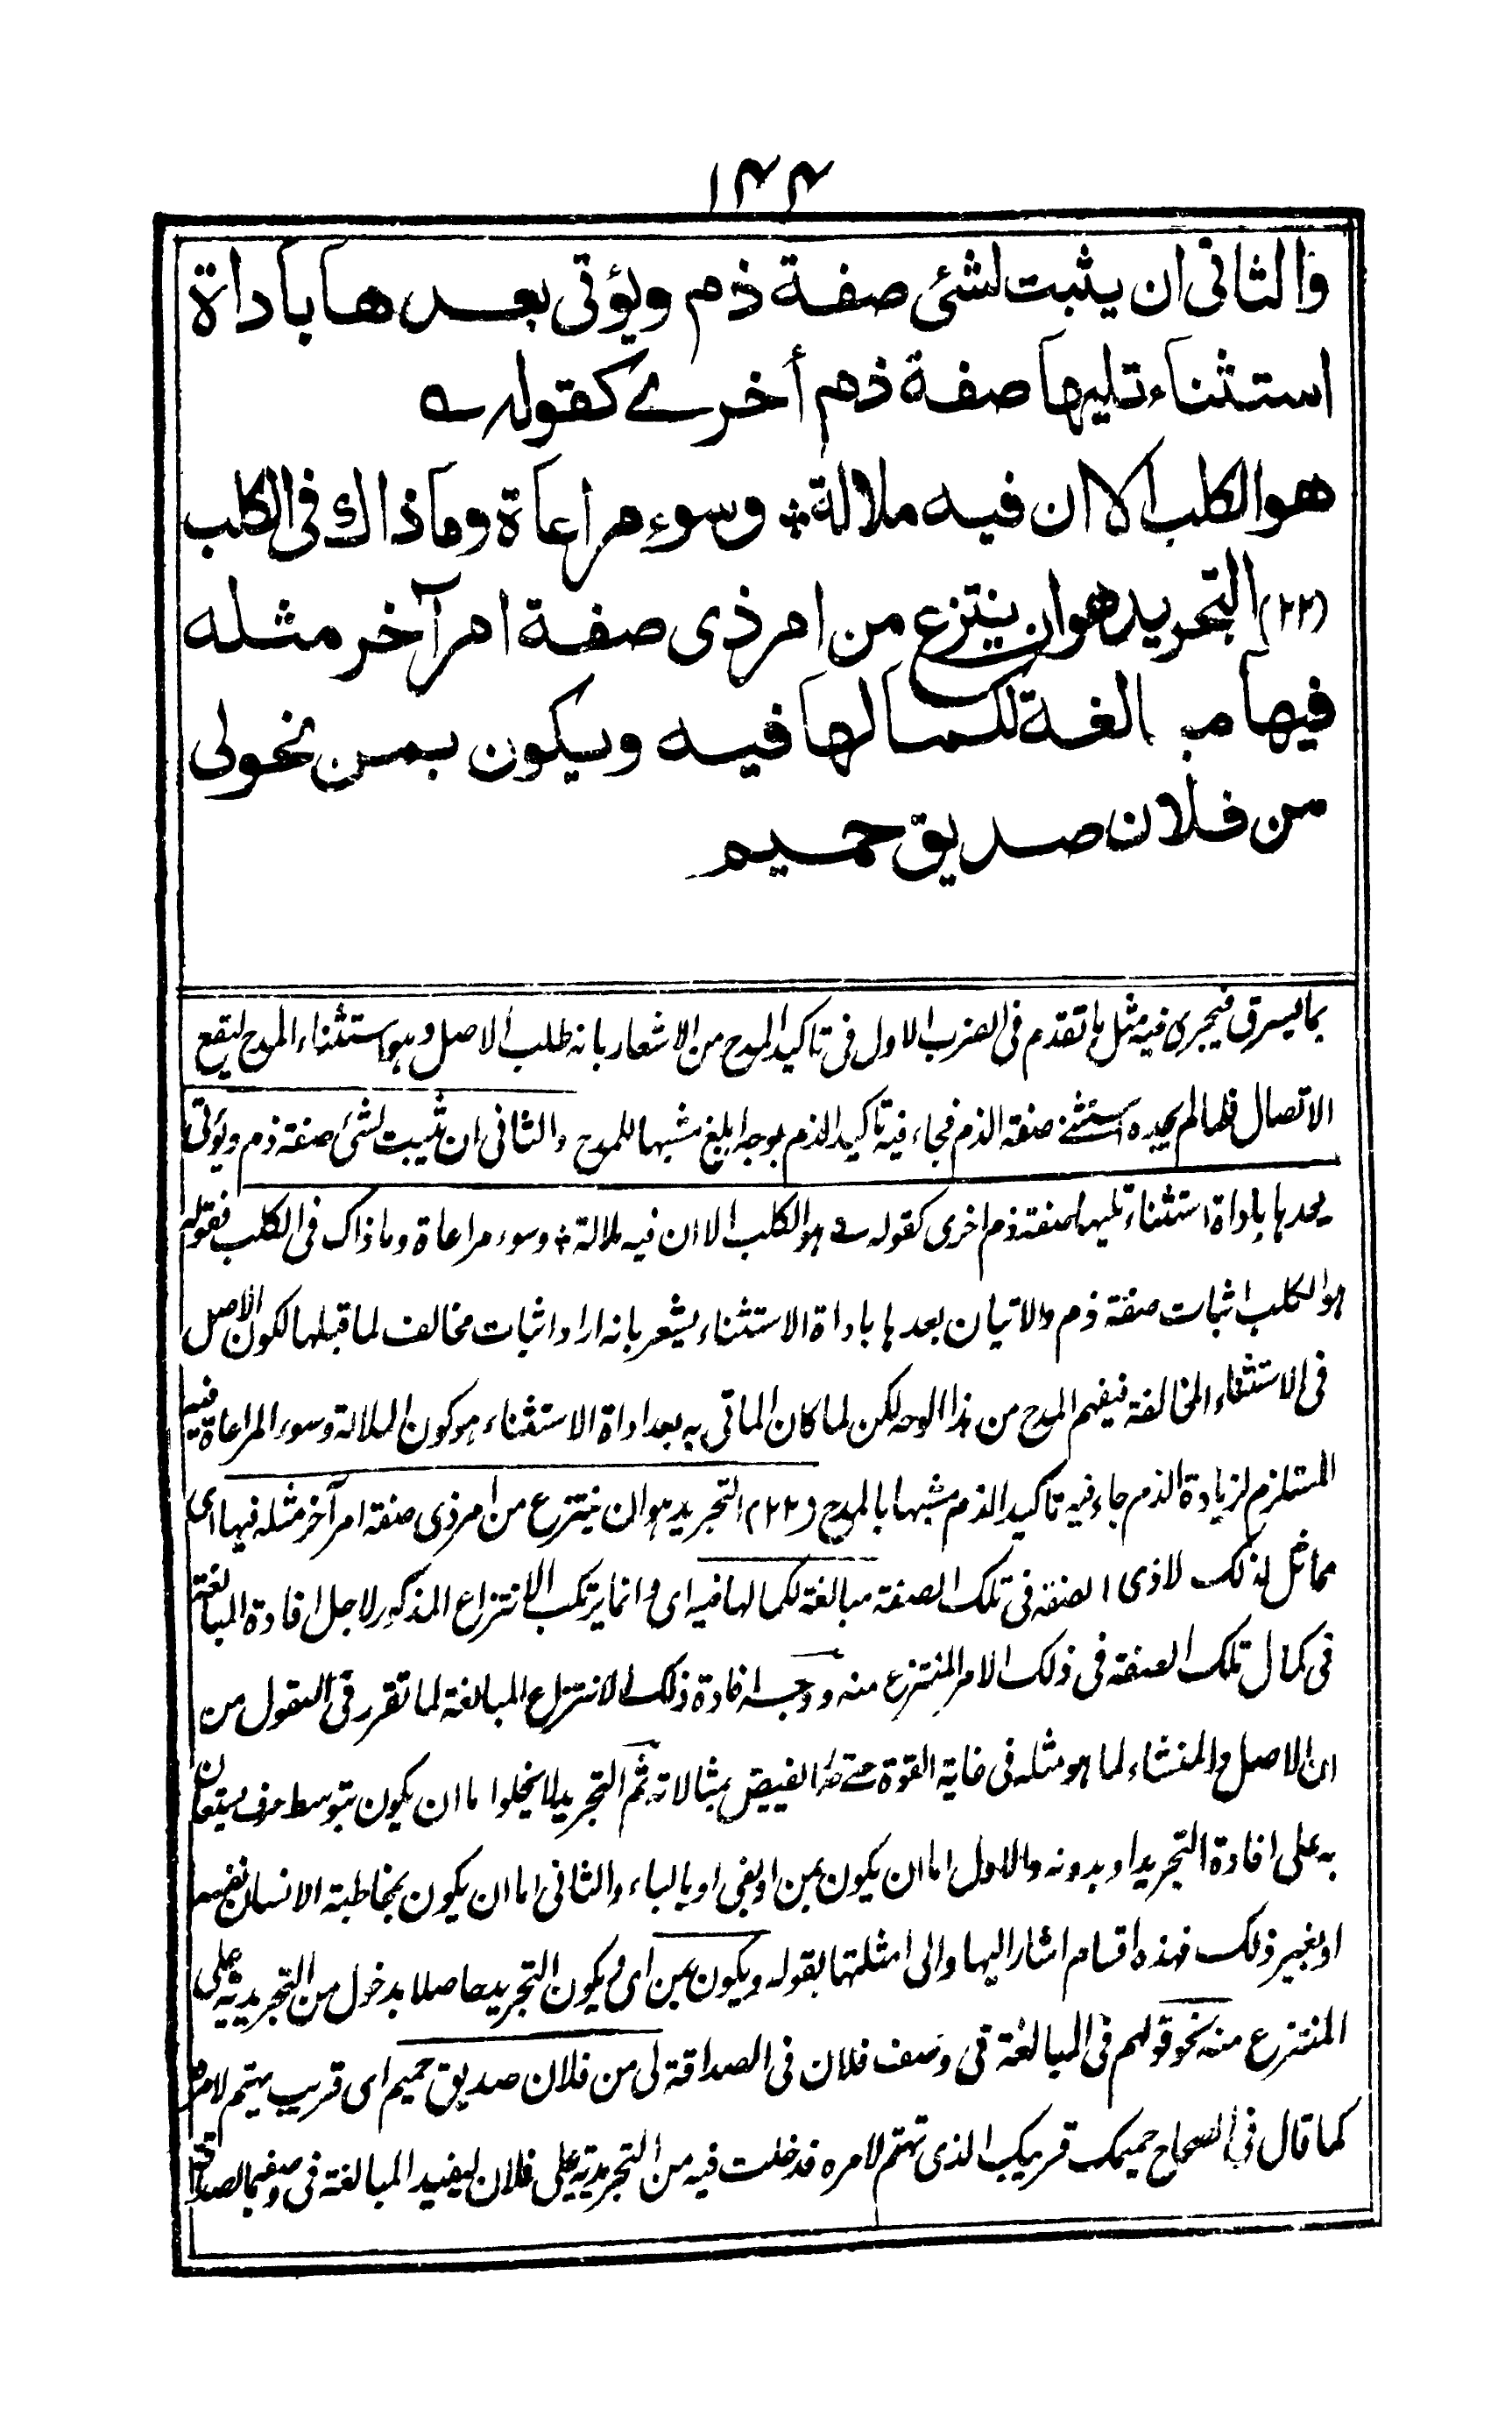 ١٤٤
والثاني ان يثبت لشئ صفة ذم ويؤتى بعدها باداة
استثناء تليها صفة ذم أخرے كقوله ؎
هو الكلب الا ان فيه ملالة ٭ وسوء مراعاة وما ذاك فى الكلب
(٢٢) التجريد هو ان ينتزع من امر ذى صفة امر آخر مثله
فيها مبالغة لكمالها فيه ويكون بمن نحو لى
من فلان صديق حميم
بما يسرق فيجرى فيه مثل ما تقدم فى الضرب الاول فى تاكيد المدح من الاشعار بانه طلب الاصل وهو استثناء المدح ليقع
الاتصال فلما لم يجده استثنے صفة الذم فجاء فيه تاكيد الذم بوجه ابلغ مشبها للمدح والثانى ان يثبت لشئ صفة ذم ويؤتى
بعدها باداة استثناء تليها صفة ذم اخرى كقوله ؎ هو الكلب الا ان فيه ملالة ٭ وسوء مراعاة وما ذاك فى الكلب فقوله
هو الكلب اثبات صفة ذم والاتيان بعدها باداة الاستثناء يشعر بانه اراد اثبات مخالف لما قبلها لكون الاصل
فى الاستثناء المخالفة فيفهم المدح من هذا الوجه لكن لما كان الماتى به بعد اداة الاستثناء هو كون الملالة وسوء المراعاة فيه
المستلزم لزيادة الذم جاء فيه تاكيد الذم مشبها بالمدح (٢٢) التجريد هو ان ينتزع من امر ذى صفة امر آخر مثله فيها اى
مماثل لذلك لاذى الصفة فى تلك الصفة مبالغة لكمالها فيه اى وانما يرتكب الانتزاع المذكور لاجل افادة المبالغة
فى كمال تلك الصفة فى ذلك الامر المنتزع منه ووجه افادة ذلك الانتزاع المبالغة لما تقرر فى العقول من
ان الاصل والمنشاء لما هو مثله فى غاية القوة حتے صار الفيض بمثالاته ثم التجريد لا يخلوا ما ان يكون بتوسط حرف يستعان
به على افادة التجريد او بدونه والاول اما ان يكون بمن او بفى او بالباء والثانى اما ان يكون بمخاطبة الانسان نفسه
او بغير ذلك فهذه اقسام اشار اليها والى امثلتها بقوله ويكون بمن اى ويكون التجريد حاصلا بدخول من التجريدية على
المنتزع منه نحو قولهم فى المبالغة فى وصف فلان فى الصداقة لى من فلان صديق حميم اى قريب يهتم لامره
كما قال فى الصحاح حميمك قريبك الذى تهتم لامره فدخلت فيه من التجريدية على فلان ليفيد المبالغة فى وصفه بالصداقة